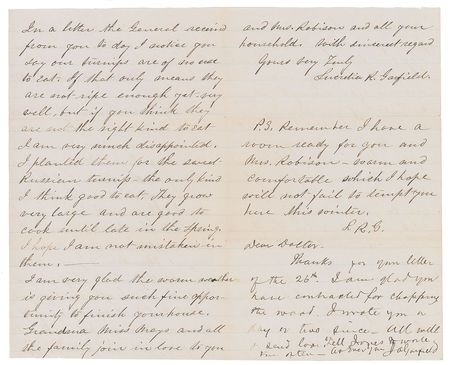 In a letter the General received
from you to day I notice you
say our turnips are of no use
to eat. If that only means they
are not ripe enough yet- very
well, but if you think they
are not the right kind to eat
I am very much disappointed.
I planted them for the sweet
Russian turnips- the only kind
I think good to eat. They grow
very large and are good to
cook until late in the spring.
I hope I am not mistaken in
them.—
I am very glad the warm weather
is giving you such fine oppor-
tunity to finish your house.
Grandma Miss Mays and all
the family join in love to you
and Mrs. Robison and all your
household. With sincerest regard
Yours very truly
Lucretia R. Garfield.
P.S. Remember I have a
room ready for you and
Mrs. Robison- warm and
comfortable which I hope
will not fail to tempt you
here this winter.
L.R.G.
Dear Doctor.
Thanks for your letter
of the 26th. I am glad you
have contracted for chopping
the wood. I wrote you a
day or two since- All well
& send love. Tell Jones to write
me often- As Ever Your J A Garfield